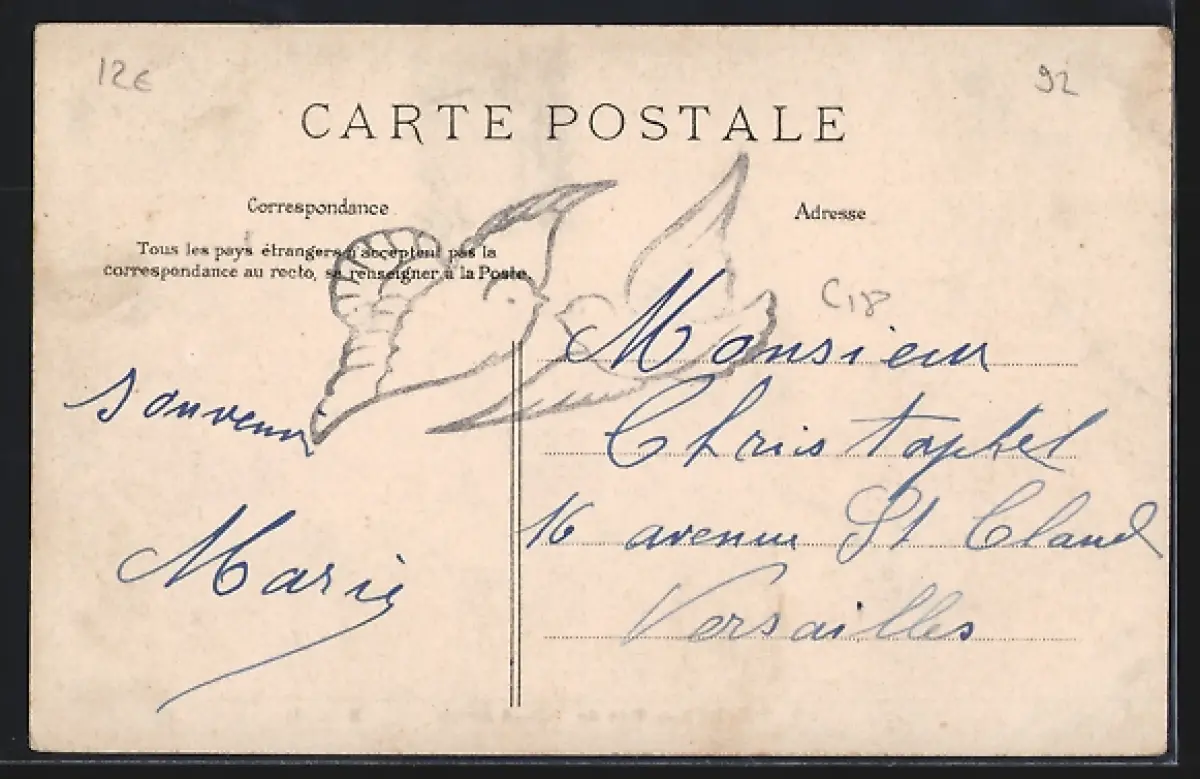 12€
92
CARTE POSTALE
Correspondance
Tous les pays étrangers n'acceptent pas la
correspondance au recto, se renseigner à la Poste.
Souvenir
Marie
Adresse
C18
Monsieur
Christophel
16 avenue St Cloud
Versailles